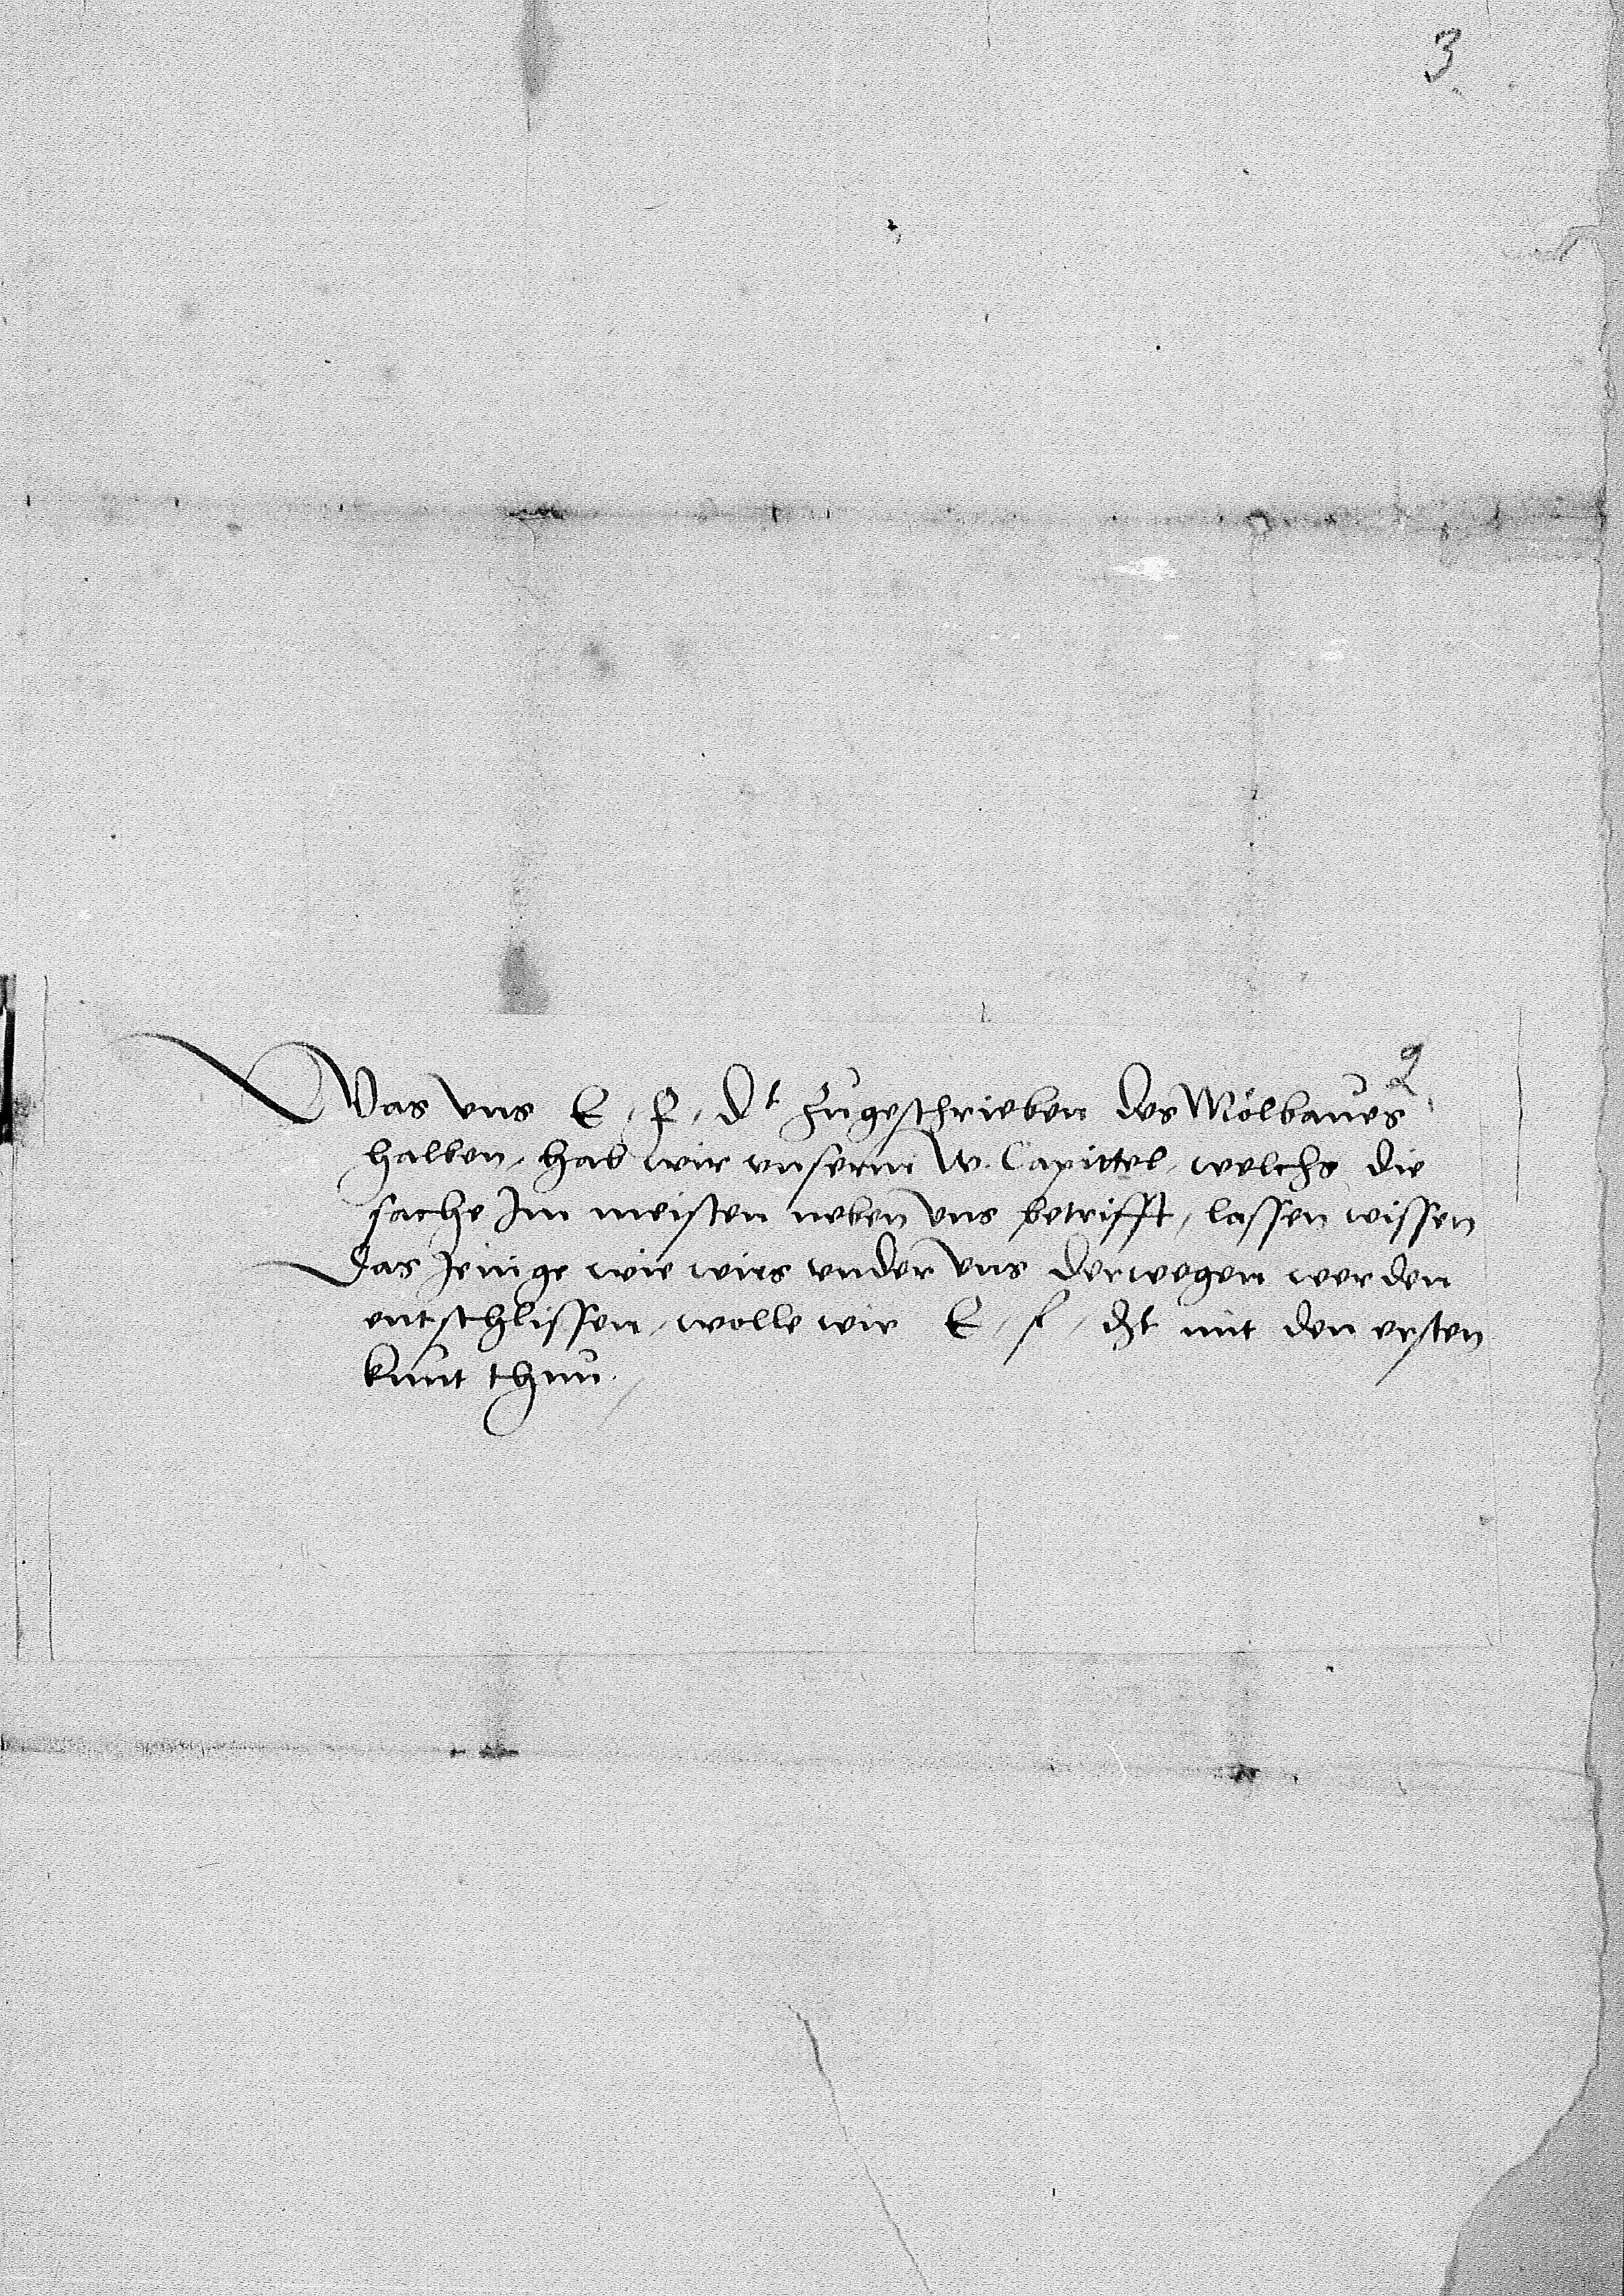 3
2
Was vns E, f, dt zugeschrieben des Mölbaues
halben, hab wir vnserm W. Capittel, welchs die
sache Im meisten neben vns betrifft, lassen wissen
Das Jenige wie wirs vnder vns derwegen werden
entschlissen, wolle wir E, f, dt mit den ersten
kunt thun.